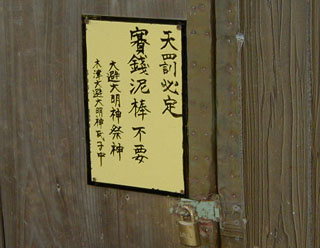 天罰必定
賽錢泥棒不要
大避大明神祭神
木津大避大明神氏子中